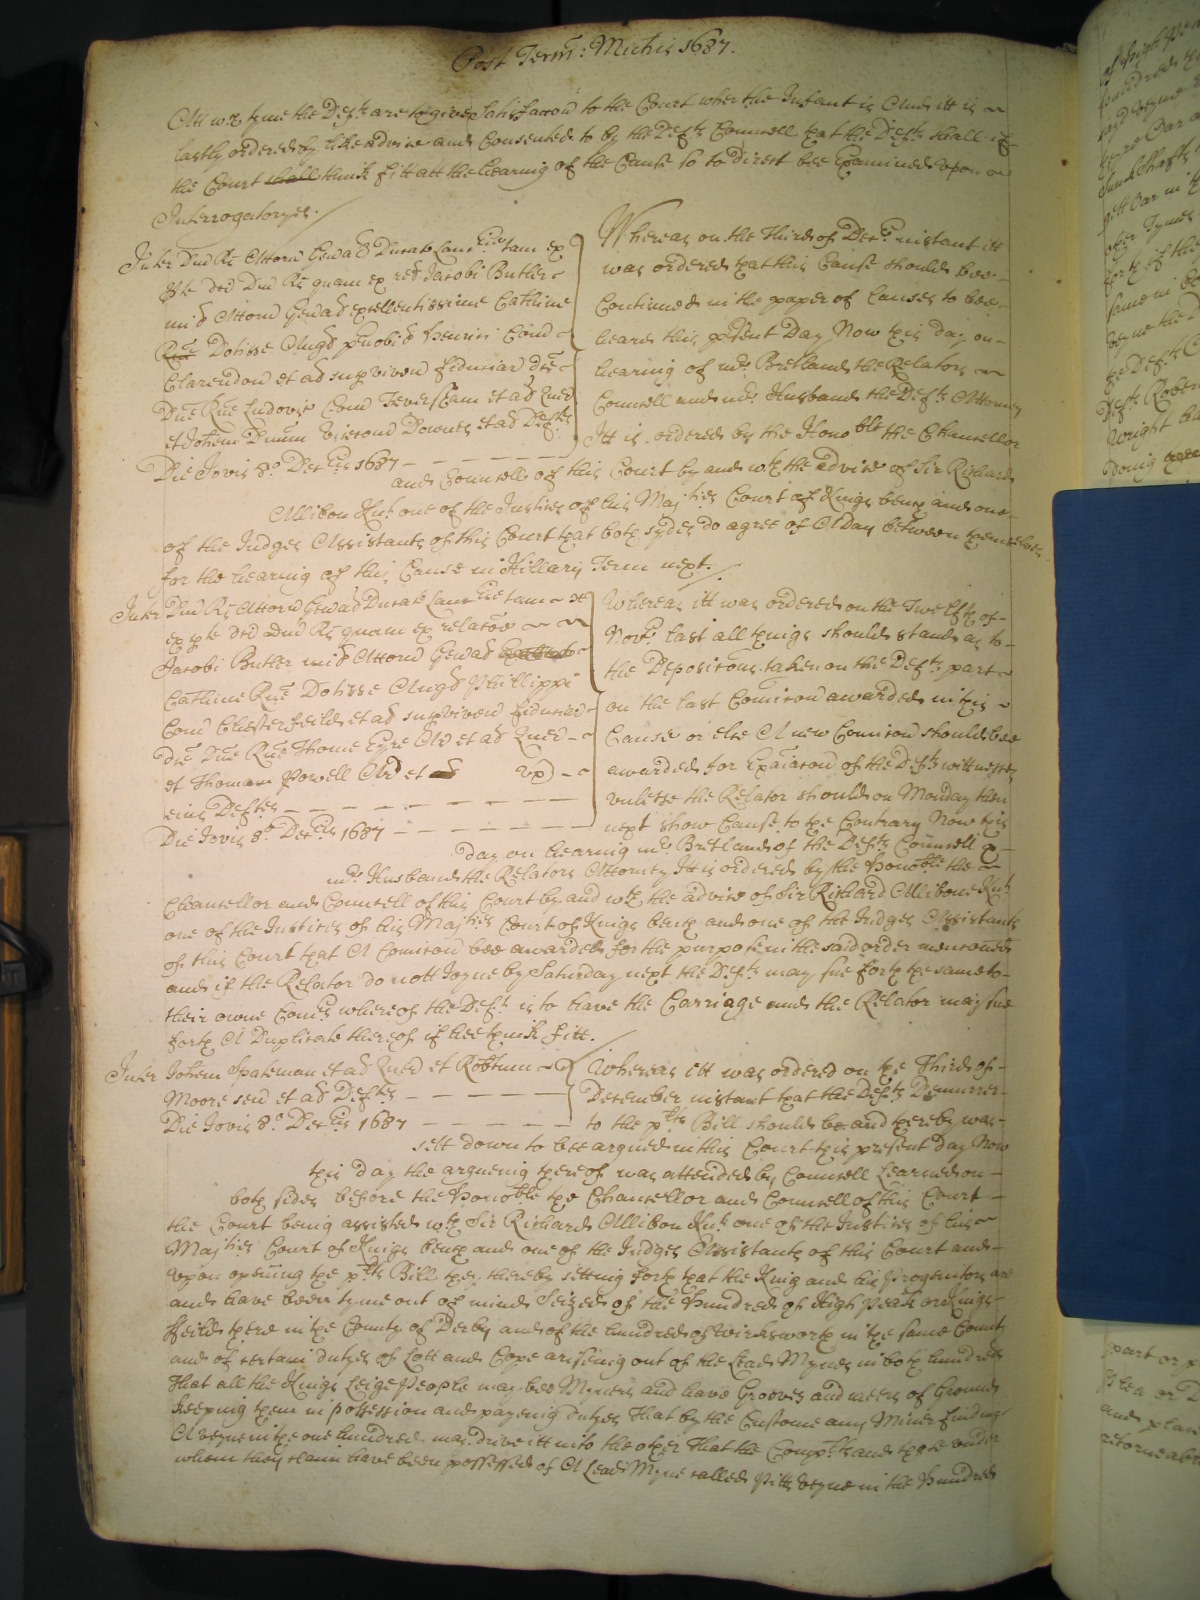 Post Term: Michis 1687.
Att wch tyme the Defts are to give Satisfaccon to the Court wher the Infant is And itt is
lastly ordered by like advise and Consented to by the Defts Councell that the Defts shall if
the Court shall think fitt att the hearing of the Cause so to direct bee Examined upon
Interrogatoryes.
Inter Dnu Rs Attorn Genal Ducat Lanc tam ex
pte dci Dni Rs quam ex rel Jacobi Butler
mil Attorn Genal excellentissime Catherine
Rne Dotisse Angl Henrici Com
Clarendon et al supviven fiduciar dce
Dne Rne Ludovic Com Feversham et al Quer
et Johem Dnum Vicecom Downes et al Deftes
Die Jovis 8o Decbris 1687
Whereas on the Third of Decr instant itt
was ordered that this Cause should bee
Continued in the paper of Causes to bee
heard this psent Day Now this day on
hearing of mr Bretland the Relators
Councell and mr Husband the Defts Attorney
Itt is ordered by the Honoble the Chancellor
and Councell of this Court by and wth the advise of Sir Richard
Allibon Knt one of the Justices of his Majties Court of Kings bench and one
of the Judges Assistants of this Court that both sydes do agree of A Day between themselves
for the hearing of this Cause in Hillary Term next.
Inter Dnu Rs Attorn Genal Ducat Lanc tam
ex pte dci Dni Rs quam ex relacoe
Jacobi Butler mil Attorn Genal
Catherine Rne Dotisse Angl Phillippi
Com Chesterfeild et al supviven fiduciar
dce Dne Rne Thome Eyre Ar et al Quer
et Thomam Powell Ar et ux
eius Deftes
Die Jovis 8o Decbris 1687
Whereas itt was ordered on the Twelfth of
Novr last all things should stand as to
the Deposicons taken on the Defts part
on the last Comicon awarded in this
Cause or else A new Comicon should bee
awarded for Exaiacon of the Defts wittnesses
unlesse the Relator should on Monday then
next show Cause to the Contrary Now this
day on hearing mr Bretland of the Defts Councell &
mr Husband the Relators Attorney Itt is ordered by the Honoble the
Chancellor and Councell of this Court by and wth the advise of Sir Richard Allibone Knt
one of the Justices of his Majties Court of Kings bench and one of the Judges Assistants
of this Court that A Comicon bee awarded for the purpose in the said order menconed
and if the Relator do nott Joyne by Saturday next the Defts may sue forth the same to
their owne Comrs whereof the Deft is to have the Carriage and the Relator may sue
forth A Duplicate thereof if hee think fitt.
Inter Johem Spateman et al Quer et Robtum
Moore sen et al Deftes
Die Jovis 8o Decbris 1687
Whereas itt was ordered on the Third of
December instant that the Defts Demurrer
to the plts Bill should be and thereby was
sett down to bee argued in this Court this present day Now
this day the argueing thereof was attended by Councell Learned on
both sides before the Honoble the Chancellor and Councell of this Court
the Court being assisted wth Sir Richard Allibon Knt one of the Justices of his
Majties Court of Kings bench and one of the Judges Assistants of this Court and
upon opening the plts Bill they thereby setting forth that the King and his Progenitors are
and have been tyme out of mind Seized of the Hundred of High Peak or Kings
ffeild there in the County of Derby and of the hundred of Wirksworth in the same County
and of certain dutyes of Lott and Cope ariseing out of the Lead Mynes in both hundreds
That all the Kings Leige People may bee Myners and have Grooves and meers of Ground
keeping them in possession and payeing dutyes That by the Custome any Miner finding
A veyne in the one hundred may drive itt into the other That the Complts and those under
whom they claim have been possessed of A Lead Myne called Pitts veyne in the Hundred